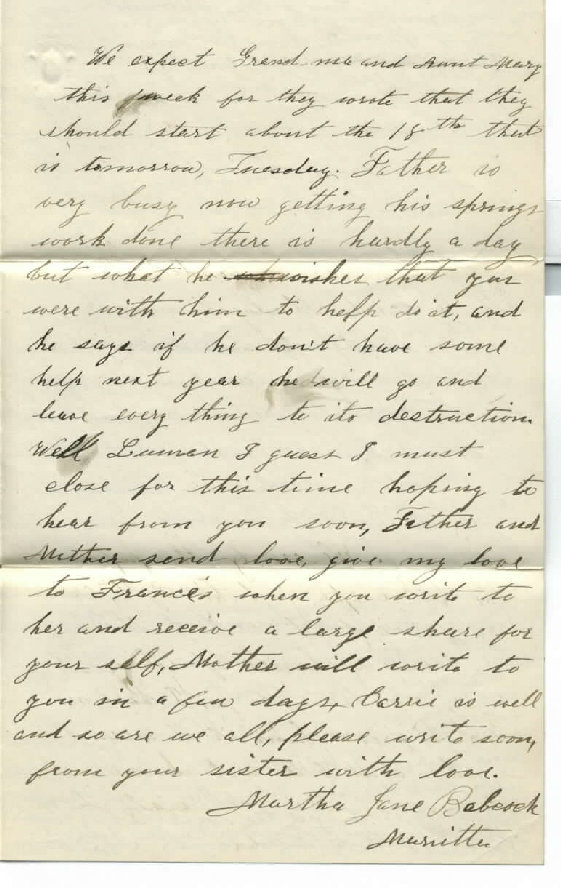 We expect Grand ma and Aunt Mary
this week for they wrote that they
should start about the 18th that
is tomorrow, Tuesday. Father is
very busy now getting his springs
work done there is hardly a day
but what he wishes that you
were with him to help do it, and
he says if he don't have some
help next year he will go and
leave every thing to its destruction.
Well Luman I guess I must
close for this time hoping to
hear from you soon, Father and
Mother send love, give my love
to Frances when you write to
her and receive a large share for
your self, Mother will write to
you in a few days, Carrie is well
and so are we all, please write soon,
from your sister with love.
Martha Jane Babcock
Marietta